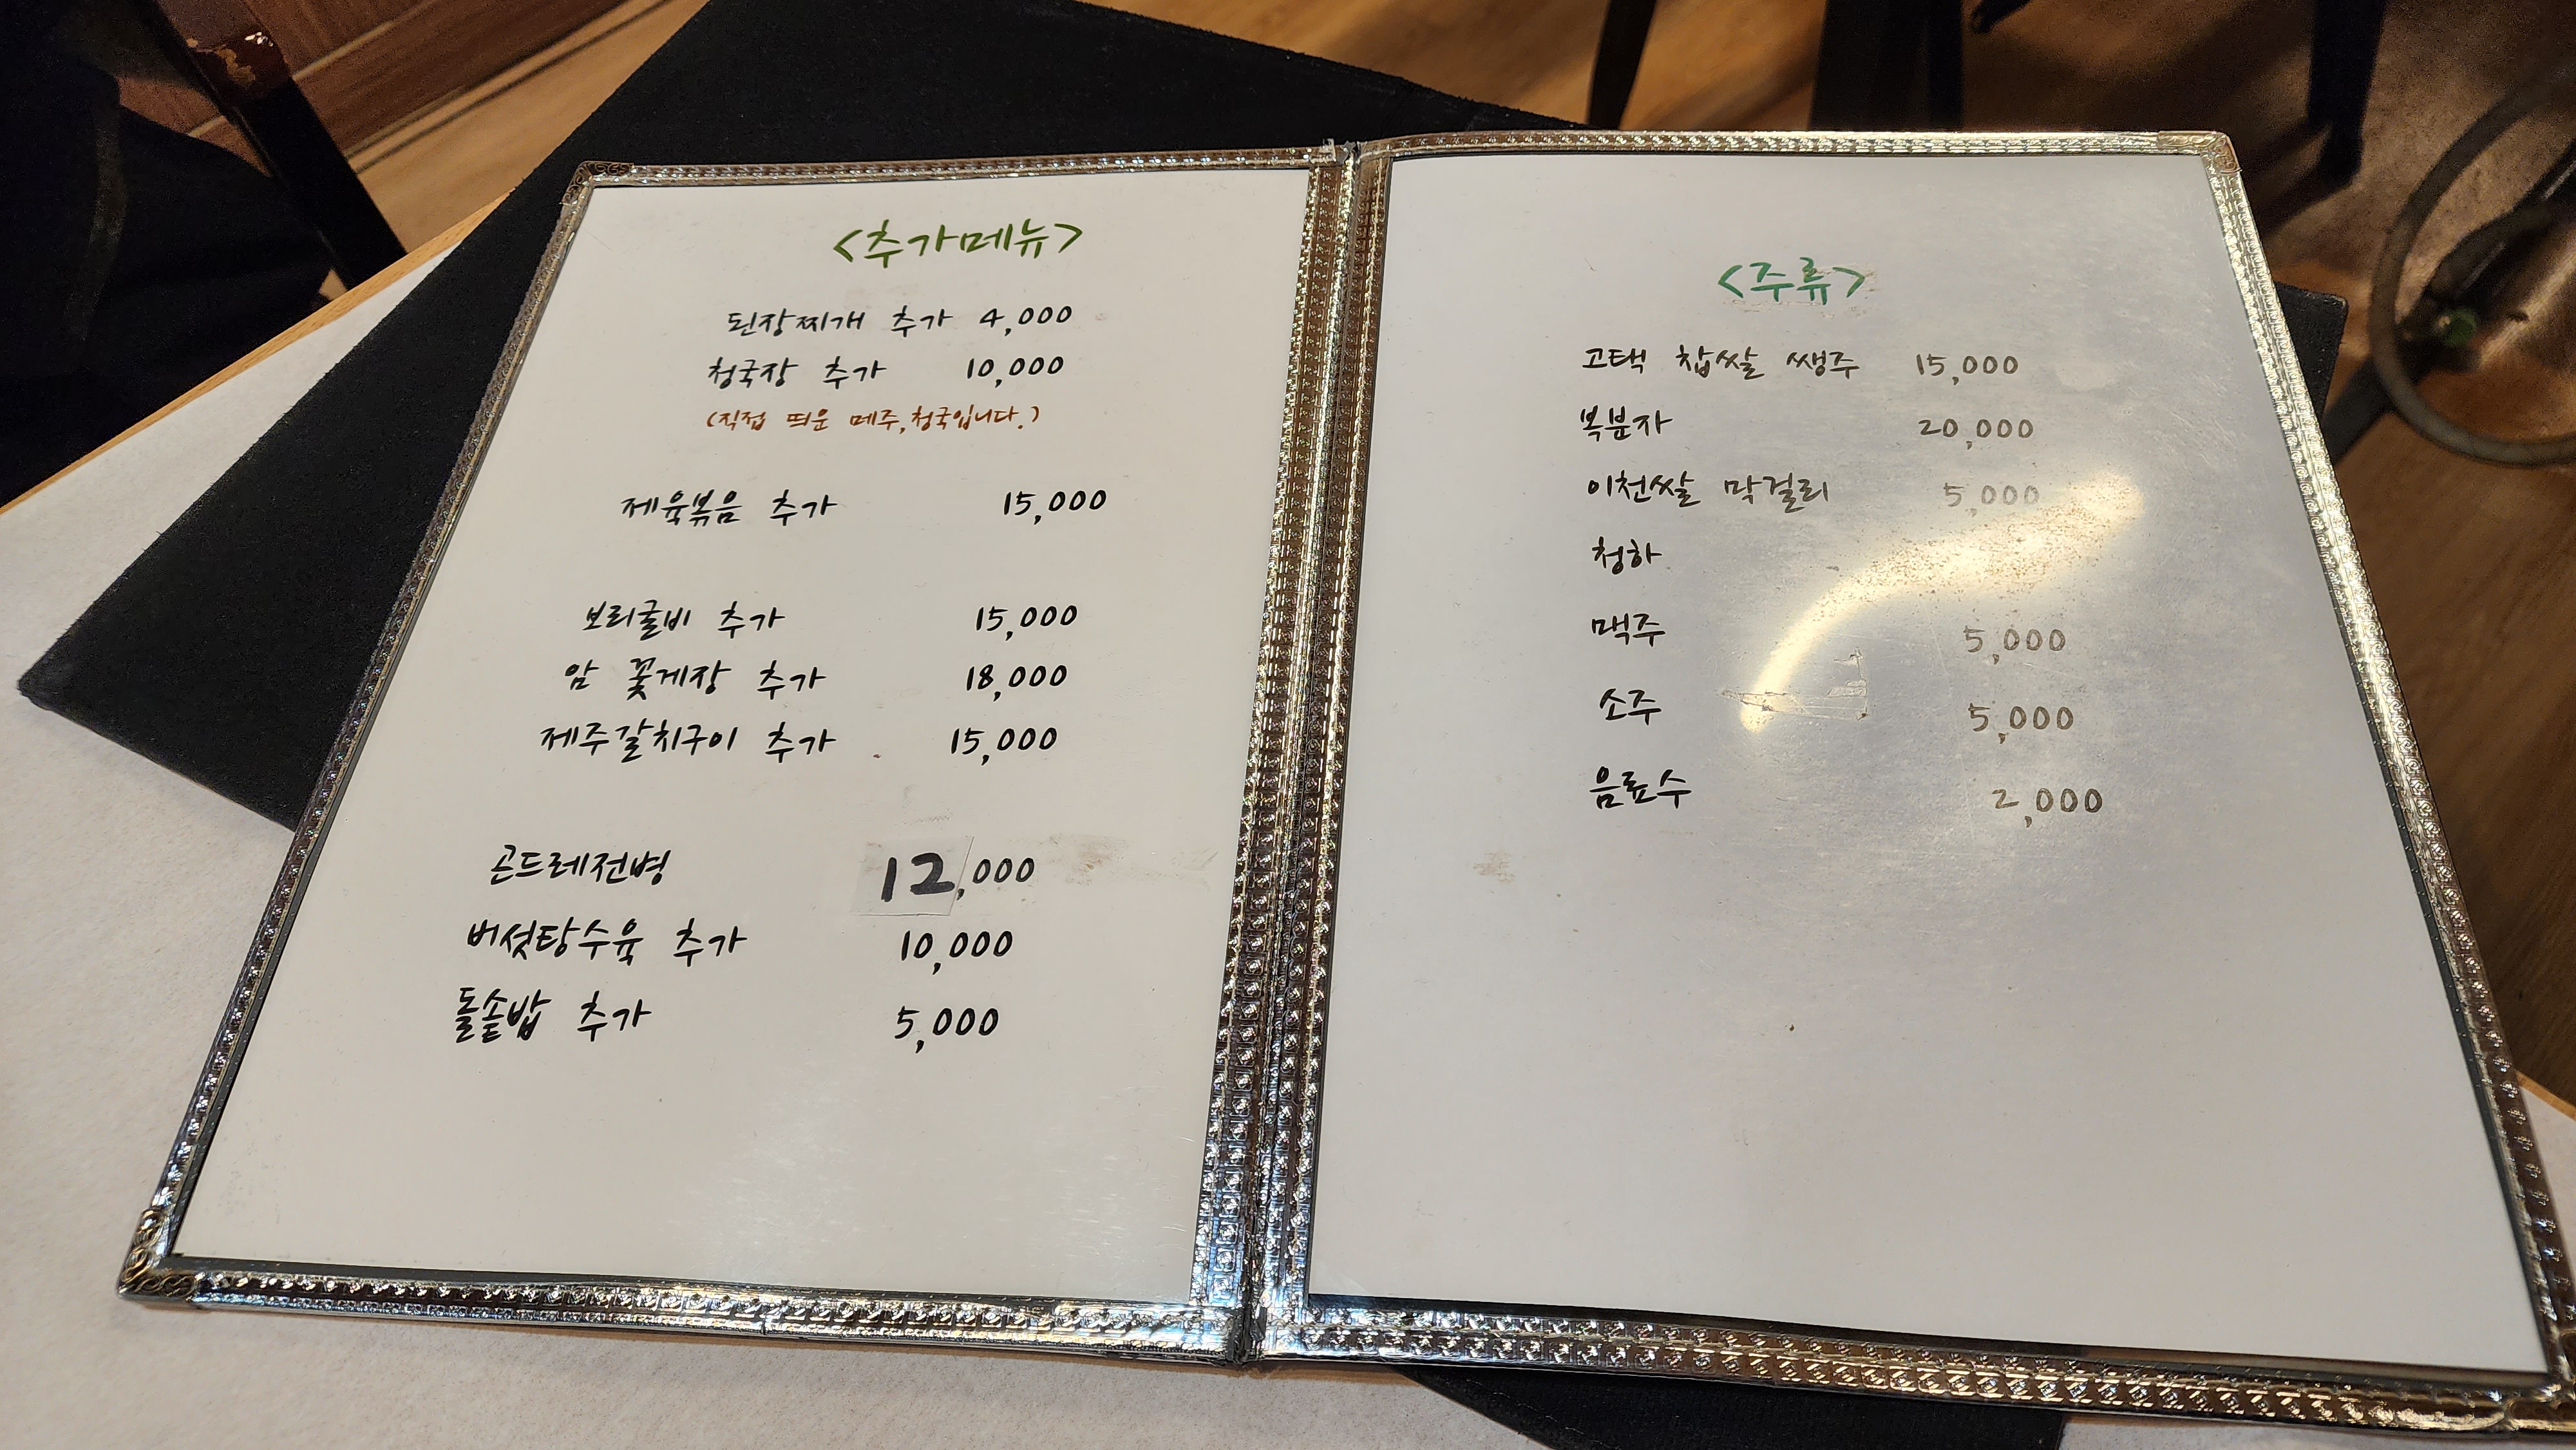 <추가메뉴>
된장찌개 추가 4,000
청국장 추가 10,000
(직접 띄운 메주,청국입니다.)
제육볶음 추가 15,000
보리굴비 추가 15,000
암 꽃게장 추가 18,000
제주갈치구이 추가 15,000
곤드레전병 12,000
버섯탕수육 추가 10,000
돌솥밥 추가 5,000
<주류>
고택 찹쌀 쌩주 15,000
복분자 20,000
이천쌀 막걸리 5,000
청하
맥주 5,000
소주 5,000
음료수 2,000